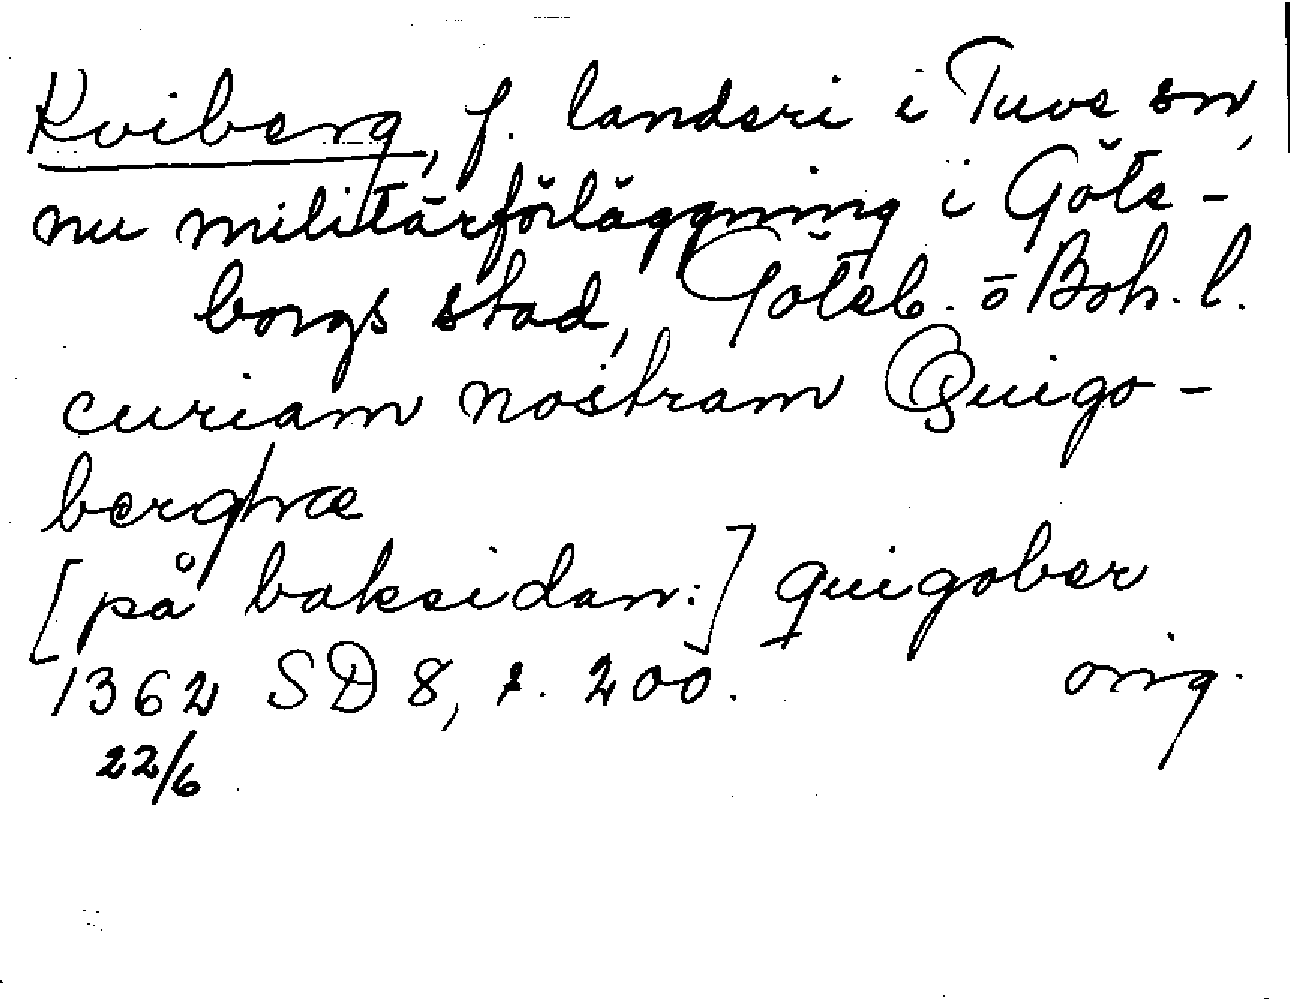 Kviberg, f. landeri i Tuve sn,
nu militärförläggning i Göte-
borgs stad, Göteb. o Boh. l.
curiam nostram Quigo-
berghræ
[på baksidan:] quigober
1362 SD 8, s. 200. orig.
22/6